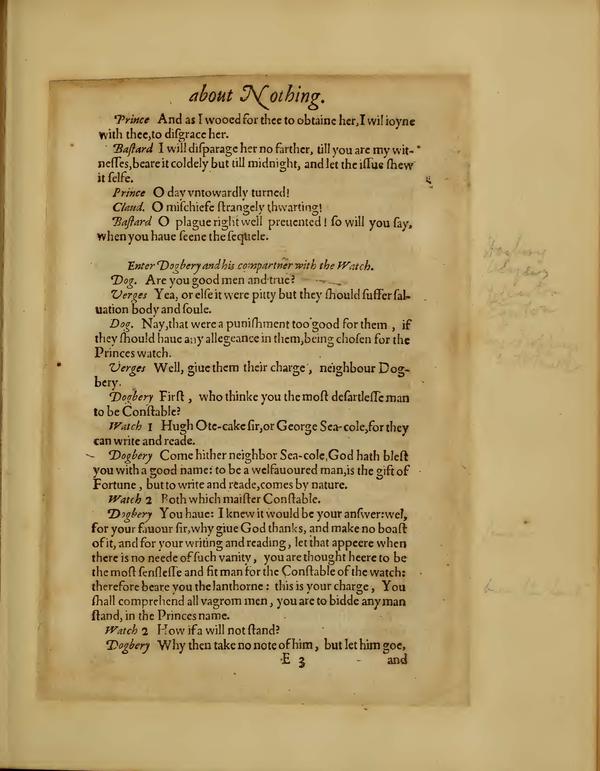 about Nothing.
Prince And as I wooed for thee to obtaine her, I wil ioyne
with thee, to diſgrace her.
Baſtard I will diſparage her no farther, till you are my wit-
neſſes, beare it coldely but till midnight, and let the iſſue ſhew
it ſelfe.
Prince O day vntowardly turned!
Claud. O miſchiefe ſtrangely thwarting!
Baſtard O plague right well preuented! ſo will you ſay,
when you haue ſeene the ſequele.
Enter Dogbery and his compartner with the Watch.
Dog. Are you good men and true?
Verges Yea, or elſe it were pitty but they ſhould ſuffer ſal-
uation body and ſoule.
Dog. Nay, that were a puniſhment too good for them, if
they ſhould haue any allegeance in them, being choſen for the
Princes watch.
Verges Well, giue them their charge, neighbour Dog-
bery.
Dogbery Firſt, who thinke you the moſt deſartleſſe man
to be Conſtable?
Watch 1 Hugh Ote-cake ſir, or George Sea-cole, for they
can write and reade.
Dogbery Come hither neighbor Sea-cole, God hath bleſt
you with a good name: to be a welfauoured man, is the gift of
Fortune, but to write and reade, comes by nature.
Watch 2 Both which maiſter Conſtable.
Dogbery You haue: I knew it would be your anſwer: wel,
for your fauour ſir, why giue God thanks, and make no boaſt
of it, and for your writing and reading, let that appeere when
there is no neede of ſuch vanity, you are thought heere to be
the moſt ſenſleſſe and fit man for the Conſtable of the watch:
therefore beare you the lanthorne: this is your charge, You
ſhall comprehend all vagrom men, you are to bidde any man
ſtand, in the Princes name.
Watch 2 How if a will not ſtand?
Dogbery Why then take no note of him, but let him goe,
E 3 and